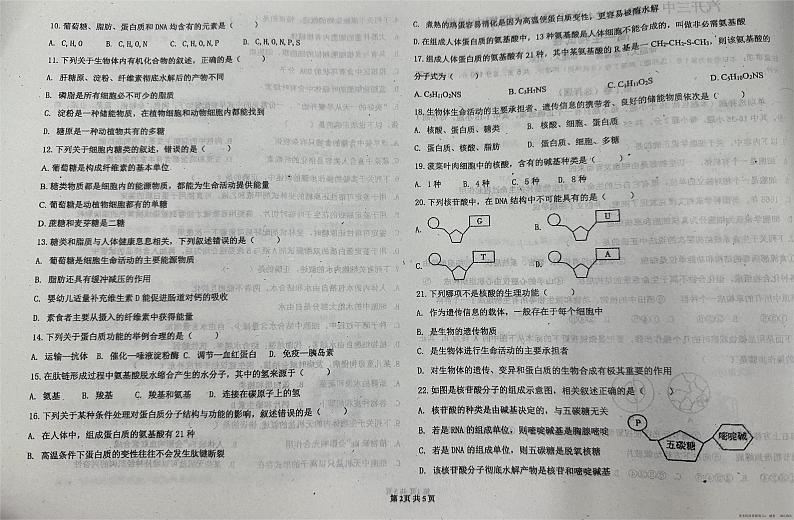 10. 葡萄糖、脂肪、蛋白质和 DNA 均含有的元素是（ ）
A. C, H, O B. C, H, O, N C. C, H, O, N, P D. C, H, O, N, P, S
11. 下列关于生物体内有机化合物的叙述，正确的是（ ）
A. 肝糖原、淀粉、纤维素彻底水解后的产物不同
B. 磷脂是所有细胞必不可少的脂质
C. 淀粉是一种储能物质，在植物细胞和动物细胞内都能找到
D. 糖原是一种动植物共有的多糖
12. 下列关于细胞内糖类的叙述，错误的是（ ）
A. 葡萄糖是构成纤维素的基本单位
B. 糖类物质都是细胞内的能源物质，都能为生命活动提供能量
C. 葡萄糖是动植物细胞都有的单糖
D. 蔗糖和麦芽糖是二糖
13. 糖类和脂质与人体健康息息相关，下列叙述错误的是（ ）
A. 葡萄糖是细胞生命活动的主要能源物质
B. 脂肪还具有缓冲减压的作用
C. 婴幼儿适量补充维生素 D 能促进肠道对钙的吸收
D. 素食者主要从摄入的纤维素中获得能量
14. 下列关于蛋白质功能的举例合理的是（ ）
A. 运输—抗体 B. 催化—唾液淀粉酶 C. 调节—血红蛋白 D. 免疫—胰岛素
15. 在肽链形成过程中氨基酸脱水缩合产生的水分子，其中的氢来源于（ ）
A. 氨基 B. 羧基 C. 羧基和氨基 D. 连接在碳原子上的氢
16. 下列关于某种条件处理对蛋白质分子结构与功能的影响，叙述错误的是（ ）
A. 在人体中，组成蛋白质的氨基酸有 21 种
B. 高温条件下蛋白质的变性往往不会发生肽键断裂
C. 煮熟的鸡蛋容易消化是因为高温使蛋白质变性，更容易被酶水解
D. 在组成人体蛋白质的氨基酸中，13 种氨基酸是人体细胞不能合成的，叫做非必需氨基酸
17. 组成人体蛋白质的氨基酸有 21 种，其中某氨基酸的 R 基是— CH₂-CH₂-S-CH₃，则该氨基酸的
分子式为（ ）
A. C₅H₁₁O₂NS C. C₅H₁₁O₂S D. C₅H₁₀O₂NS
18. 生物体生命活动的主要承担者、遗传信息的携带者、良好的储能物质依次是（ ）
A. 核酸、蛋白质、糖类 B. 核酸、细胞、蛋白质
C. 蛋白质、核酸、脂肪 D. 蛋白质、细胞、多糖
19. 菠菜叶肉细胞中的核酸，含有的碱基种类是（ ）
A. 1 种 B. 4 种 C. 5 种 D. 8 种
20. 下列核苷酸中，在 DNA 结构中不可能具有的是（ ）
A. G B. U
C. T D. A
21. 下列哪项不是核酸的生理功能（ ）
A. 作为遗传信息的载体，一般存在于每个细胞中
B. 是生物的遗传物质
C. 是生物体进行生命活动的主要承担者
D. 对生物体的遗传、变异和蛋白质的生物合成有极其重要的作用
22. 如图是核苷酸分子的组成示意图，相关叙述正确的是（ ）
A. 核苷酸的种类是由碱基决定的，与五碳糖无关
B. 若是 RNA 的组成单位，则嘧啶碱基是胸腺嘧啶
C. 若是 DNA 的组成单位，则五碳糖是脱氧核糖
D. 该核苷酸分子彻底水解产物是核苷和嘧啶碱基
P
五碳糖
嘧啶碱
第 2 页 共 5 页